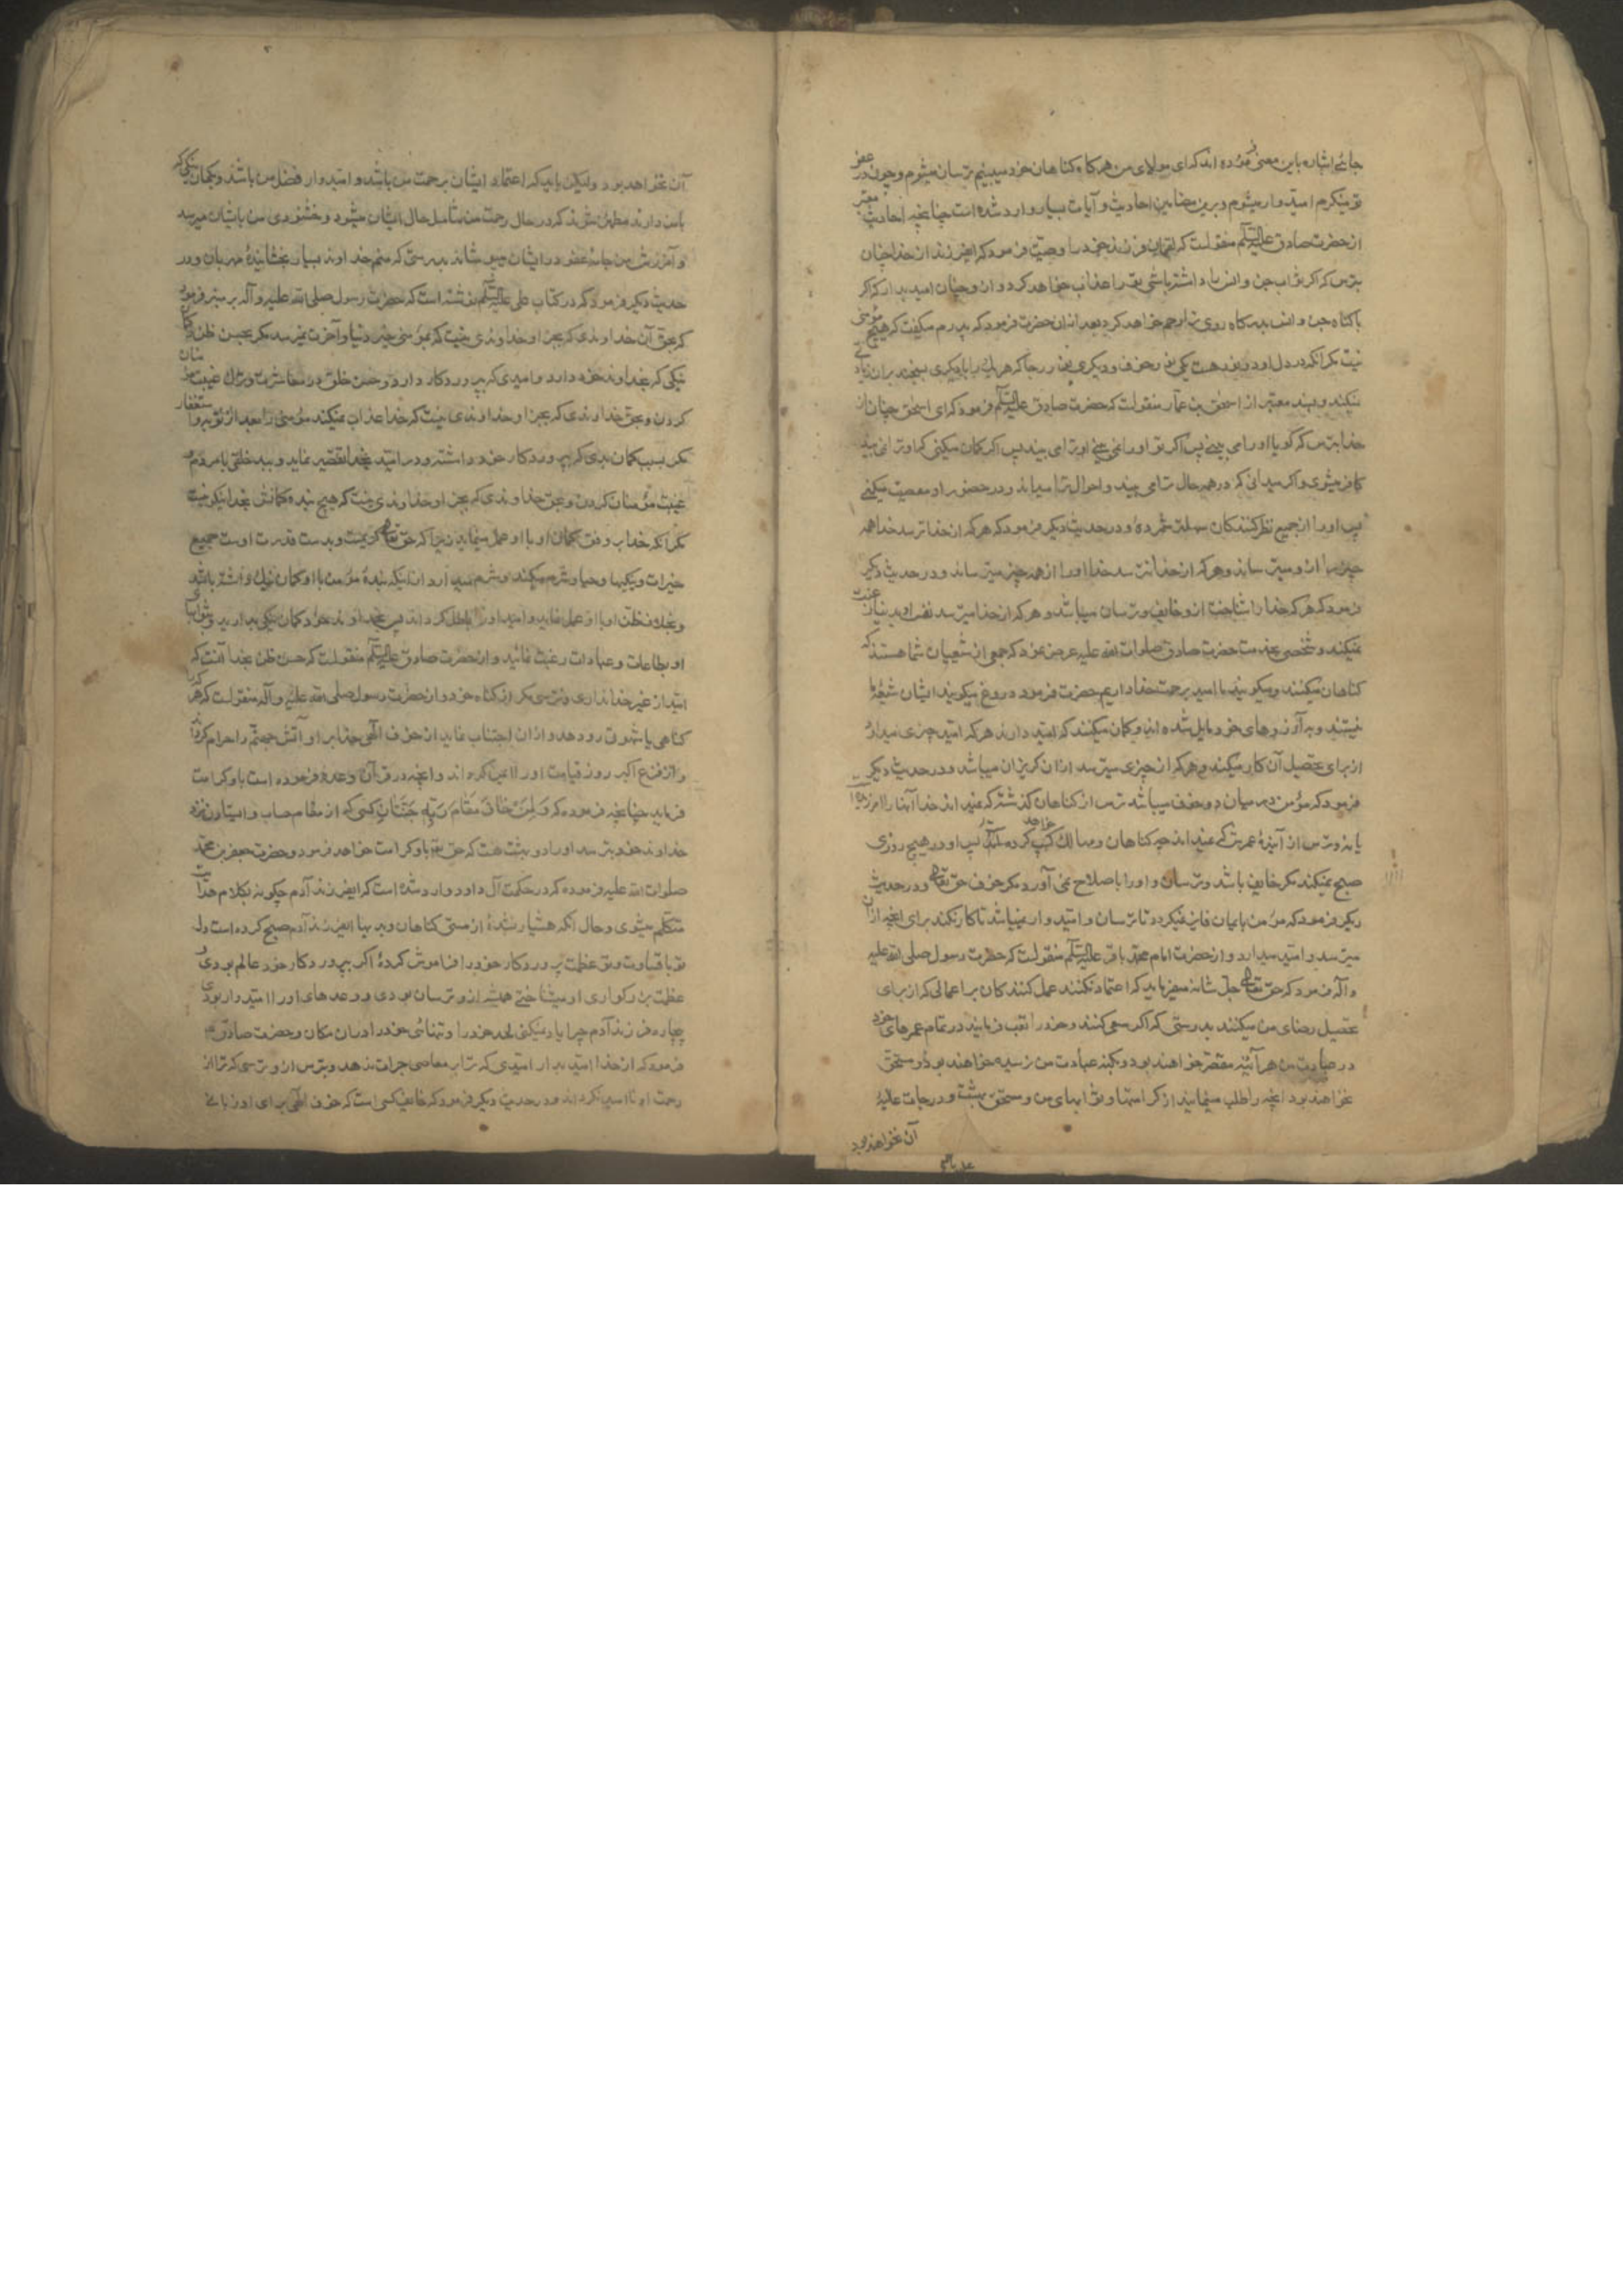 جائے اشاره باین معنی فرموده اند که ای مولای من هرکاه کناهان خود میبینم ترسان میشوم و چون در عفو
تو مینکرم امیدوار میشوم و برین مضامین احادیث و آیات بسیار وارد شده است چنانچه احادیث معتبر
از حضرت صادق علیه السلم منقولست که لقمان فرزند خود را وصیت فرمود که ایفرزند از خدا چنان
بترس که اکر ثواب جن و انس را داشته باشی ترا عذاب خواهد کرد و از و چنان امید بدار که اکر
با کناه جن و انس بدرکاه روی ترا رحم خواهد کرد بعد ازان حضرت فرمود که پدرم میکفت که هیچ مؤمنی
نیست مکر انکه در دل او دو نور هست یکی نور خوف و دیکری نور رجا که هریک را با دیکری بسنجند بران زیادتی
نمیکند و بسند معتبر از اسحق بن عمار منقولست که حضرت صادق علیه السلم فرمود که ای اسحق چنان از
خدا بترس که کویا او را می بینے پس اکر تو او را نمی بینے او ترا می بیند پس اکر کمان میکنی که او ترا نمی بیند
کافر میشوی و اکر میدانی که در همه حال ترا می بیند و احوال ترا میداند و در حضور او معصیت میکنے
پس او را از جمیع نظر کنندکان سهلتر شمردهٔ و در حدیث دیکر فرمود که هرکه از خدا ترسد خدا همه
چیز را از و میترساند و هرکه از خدا نترسد خدا او را از همه چیز میترساند و در حدیث دیکر
فرمود که هرکه خدا را شناخت از و خایف و ترسان میباشد و هرکه از خدا میترسد نفس او بدنیا رغبت
نمیکند و شخصی بخدمت حضرت صادق صلوات الله علیه عرض نمود که جمعی از شیعیان شما هستند که
کناهان میکنند و میکویند ما امید برحمت خدا داریم حضرت فرمود دروغ میکویند ایشان شیعهٔ ما
نیستند و به آرزوهای خود مایل شده اند و کمان میکنند که امید دارند هرکه امید چیزی میدارد
از برای تحصیل آن کار میکند و هرکه از چیزی میترسد ازان کریزان میباشد و در حدیث دیکر
فرمود که مؤمن در میان دو خوف میباشد ترس از کناهان کذشته که نمیداند خدا آنها را امرزیده
یا نه و ترس از آیندهٔ عمرش که نمیداند چه کناهان و مهالک کسب خواهد کرد پس او در هیچ روزی
صبح نمیکند مکر خایف باشد و ترسان و او را باصلاح نمی آورد مکر خوف حق تعالی و در حدیث
دیکر فرمود که مؤمن بایمان فایز نمیکردد تا ترسان و امیدوار نمیباشد تا کار نکند برای انچه ازان
میترسد و امید میدارد و از حضرت امام محمد باقر علیه السلم منقولست که حضرت رسول صلی الله علیه
و آله فرمود که حق تعالی جل شانه میفرماید که اعتماد نکنند عمل کنندکان بر اعمالی که از برای
تحصیل رضای من میکنند بدرستی که اکر سعی کنند و خود را تعب فرمایند در تمام عمرهای خود
در عبادت من هر آئینه مقصر خواهند بود و بکنه عبادت من نرسیده خواهند بود و مستحق
نخواهند بود انچه را طلب مینمایند از کرامتها و ثوابهای من و مستحق بهشت و درجات عالیهٔ
آن نخواهند بود
آن نخواهد بود ولیکن باید که اعتماد ایشان برحمت من باشد و امیدوار فضل من باشند و بکمان نیکی که
بمن دارند مطمئن شوند که در حال رحمت من شامل حال ایشان میشود و خشنودی من بایشان میرسد
و آمرزش من جامهٔ عفو در ایشان میپوشاند بدرستی که منم خداوند بسیار بخشایندهٔ مهربان و در
حدیث دیکر فرمود که در کتاب علی علیه السلم نوشته است که حضرت رسول صلی الله علیه و آله بر منبر فرمود
که بحق آن خداوندی که بجز او خداوندی نیست که بمؤمنی خیر دنیا و آخرت نمیرسد مکر بحسن ظن و کمان
نیکی که بخداوند خود دارد و امیدی که بپروردکار دارد و حسن خلق در معاشرت و ترک غیبت مؤمنان
کردن و بحق خداوندی که بجز او خداوندی نیست که خدا عذاب نمیکند مؤمنی را بعد از توبه و استغفار
مکر بسبب کمان بدی که بپروردکار خود داشته و در امید بخدا تقصیر نماید و بد خلقی با مردم و
غیبت مؤمنان کردن و بحق خداوندی که بجز او خداوندی نیست که هیچ بنده کمانش بخدا نیکو نیست
مکر آنکه خدا بر وفق کمان او با او عمل مینماید زیرا که حق تعالی کریمست و بدست قدرت اوست جمیع
خیرات و نیکیها و حیا و شرم میکند و شرم میدارد ازاینکه بندهٔ مؤمن با او کمان نیک داشته باشد
و بخلاف ظن او با او عمل نماید و امید او را باطل کرداند پس بخداوند خود کمان نیکی بدارید و بثوابهای
او بطاعات و عبادات رغبت نمائید و از حضرت صادق علیه السلم منقولست که حسن ظن بخدا آنست که
امید از غیر خدا نداری و نترسی مکر از کناه خود و از حضرت رسول صلی الله علیه و آله منقولست که هرکه را
کناهی یا شهوتی رو دهد و ازان اجتناب نماید از خوف الهی خدا بر او آتش جهنم را حرام کرداند
و از فزع اکبر روز قیامت او را ایمن کرداند و انچه در قرآن وعده فرموده است باو کرامت
فرماید چنانچه فرموده که وَلِمَنْ خَافَ مَقَامَ رَبِّهِ جَنَّتَانِ کسی که از مقام حساب و ایستادن نزد
خداوند خود بترسد او را دو بهشت هست که حق تعالی باو کرامت خواهد فرمود و حضرت جعفر بن محمد
صلوات الله علیه فرموده که در حکمت آل داود وارد شده است که ایفرزند آدم چکونه بکلام هدایت
متکلم میشوی و حال آنکه هشیار نشدهٔ از مستی کناهان و بدیها ایفرزند آدم صبح کرده است دل
تو با قساوت و تو عظمت پروردکار خود را فراموش کردهٔ اکر بپروردکار خود عالم بودی و
عظمت بزرکواری او میشناختی همیشه از و ترسان بودی و وعدهای او را امیدوار بودی
چه اره فرزند آدم چرا یاد نمیکنی لحد خود را و تنهائی خود را دران مکان و حضرت صادق
فرمود که از خدا امید بدار امیدی که ترا بر معاصی جرات ندهد و بترس از و ترسی که ترا از
رحمت او ناامید نکرداند و در حدیث دیکر فرمود که خایف کسی است که خوف الهی برای او زبانے